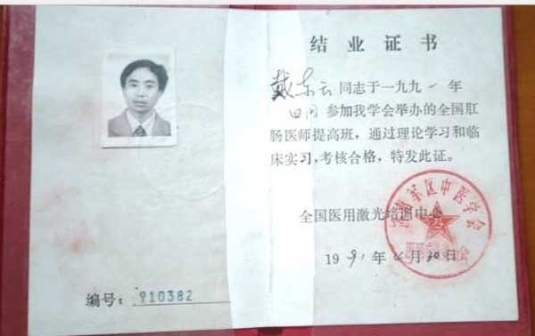 结业证书
戴东云同志于一九九一年
四月参加我学会举办的全国肛
肠医师提高班，通过理论学习和临
床实习，考核合格，特发此证。
全国医用激光培训中心
军区中医学会
1991年 月30日
编号：910382